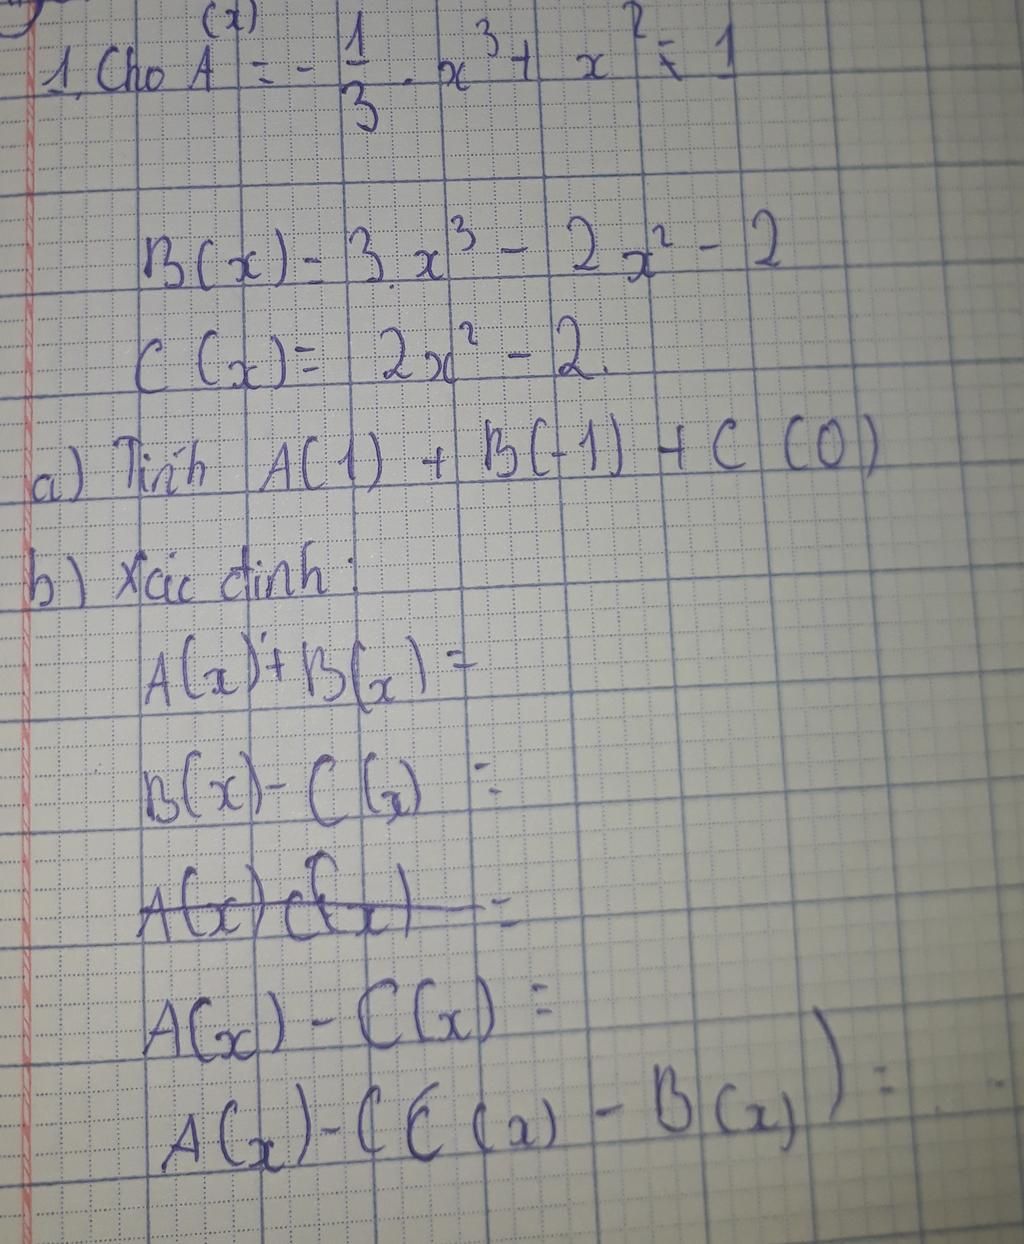 (x)
1. Cho A = - 1/3 . x³ + x² + 1
B(x) = 3.x³ - 2x² - 2
C(x) = 2x² - 2.
a) Tính A(1) + B(-1) + C(0)
b) Xác định:
A(x) + B(x) =
B(x) - C(x) =
A(x) C(x) =
A(x) - C(x) =
A(x) - (C(x) - B(x)) =